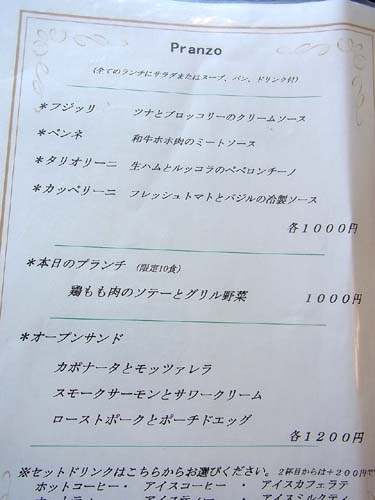 Pranzo
(全てのランチにサラダまたはスープ、パン、ドリンク付)
*フジッリ ツナとブロッコリーのクリームソース
*ペンネ 和牛ホホ肉のミートソース
*タリオリーニ 生ハムとルッコラのペペロンチーノ
*カッペリーニ フレッシュトマトとバジルの冷製ソース
各1000円
*本日のブランチ (限定10食)
鶏もも肉のソテーとグリル野菜 1000円
*オープンサンド
カポナータとモッツァレラ
スモークサーモンとサワークリーム
ローストポークとポーチドエッグ
各1200円
※セットドリンクはこちらからお選びください。2杯目からは+200円で
ホットコーヒー・ アイスコーヒー ・ アイスカフェラテ
アイスティー ・ アイスミルクティ